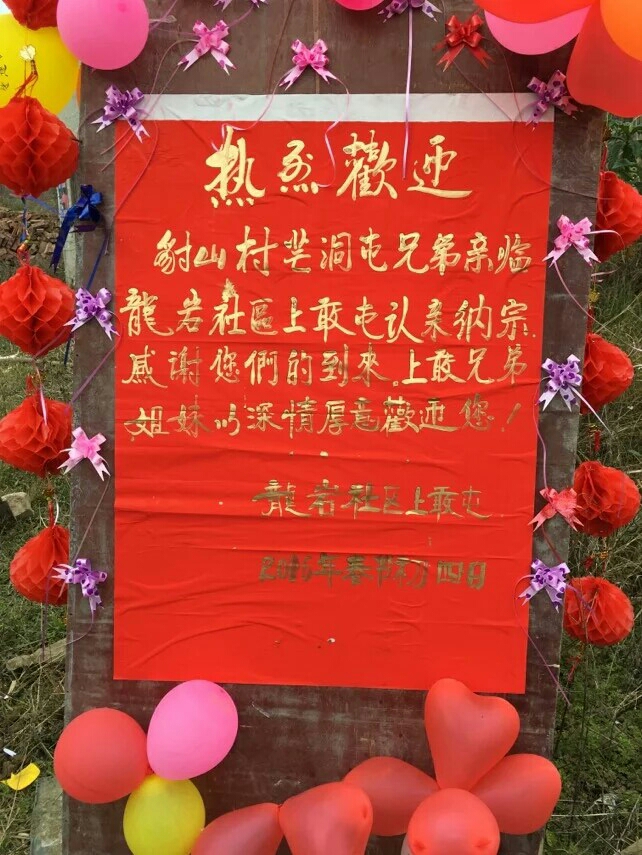 热烈歡迎
射山村芒洞屯兄弟亲临
龍岩社區上敢屯认亲纳宗.
感谢您們的到來.上敢兄弟
姐妹以深情厚意歡迎您!
龍岩社区上敢屯
年春节初四日